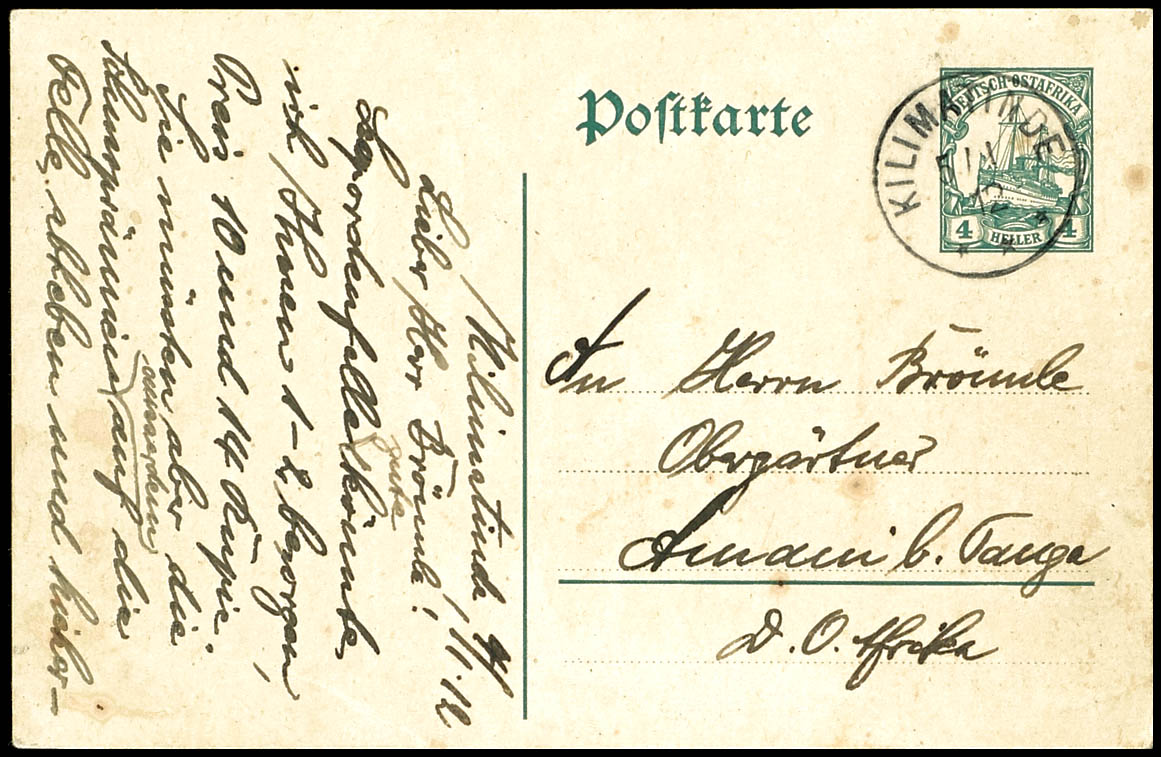 Postkarte
DEUTSCH-OSTAFRIKA
4 HELLER 4
KILIMATINDE
11
12
An Herrn Brömle
Obergärtner
Amani b. Tanga
D. O. Afrika
Kilimatinde 4/11.12
Lieber Herr Brömle!
Leopardenfelle könnte
gute
ich Ihnen 1-2 besorgen,
Preis 10 und 14 Rupie.
Sie müssen aber die
ausserdem
auf die
Felle, abheben und